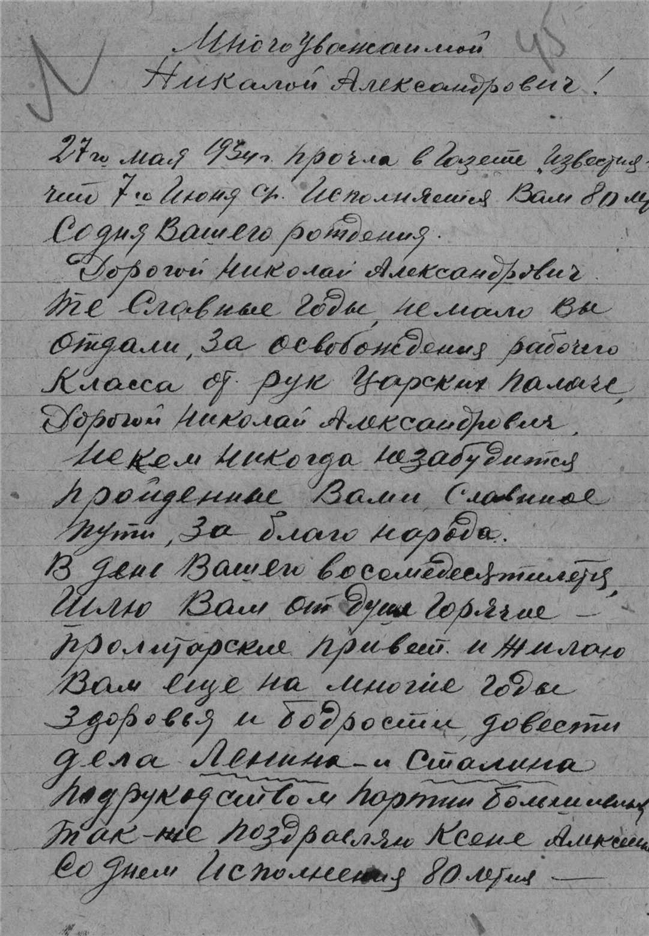 45
Многоуважаимой
Никалой Александрович!
27го мая 1934г. прочла в Газете „Известия"
что 7го Июня ср. Исполняется Вам 80 ле
Со дня Вашего рождения.
Дорогой Николай Александрович.
те Славные Годы, немало Вы
отдали, за освобождения рабочего
Класса от рук Царских палаче,
Дорогой Николай Александрович,
некем никогда незабудится
пройденные Вами Славные
пути, за благо народа.
В день Вашего восомедесятилетия,
Шлю Вам от Души Горячие —
пролитарские привет. и жилаю
Вам еще на многие годы
Здоровья и Бодрости, довести
дела Ленина и Сталина
подрукодством партии
так-же поздравляю Ксене
Со днем Исполнения 80 летия —